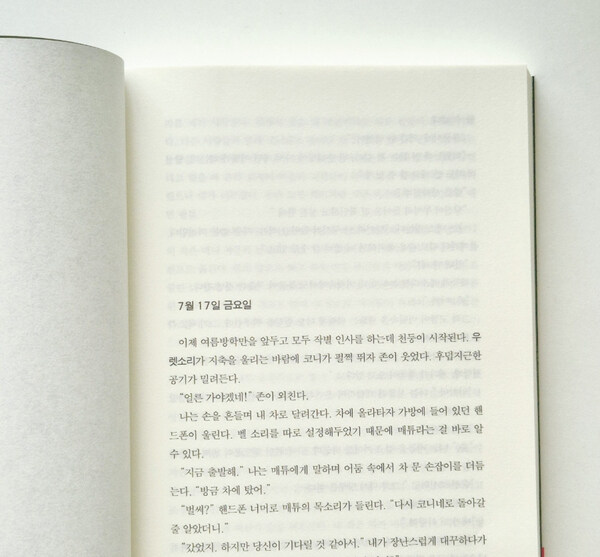 7월 17일 금요일
이제 여름방학만을 앞두고 모두 작별 인사를 하는데 천둥이 시작된다. 우
렛소리가 지축을 울리는 바람에 코니가 펄쩍 뛰자 존이 웃었다. 후덥지근한
공기가 밀려든다.
"얼른 가야겠네!" 존이 외친다.
나는 손을 흔들며 내 차로 달려간다. 차에 올라타자 가방에 들어 있던 핸
드폰이 울린다. 벨 소리를 따로 설정해두었기 때문에 매튜라는 걸 바로 알
수 있다.
"지금 출발해." 나는 매튜에게 말하며 어둠 속에서 차 문 손잡이를 더듬
는다. "방금 차에 탔어."
"벌써?" 핸드폰 너머로 매튜의 목소리가 들린다. "다시 코니네로 돌아갈
줄 알았더니."
"갔었지. 하지만 당신이 기다릴 것 같아서." 내가 장난스럽게 대꾸하다가